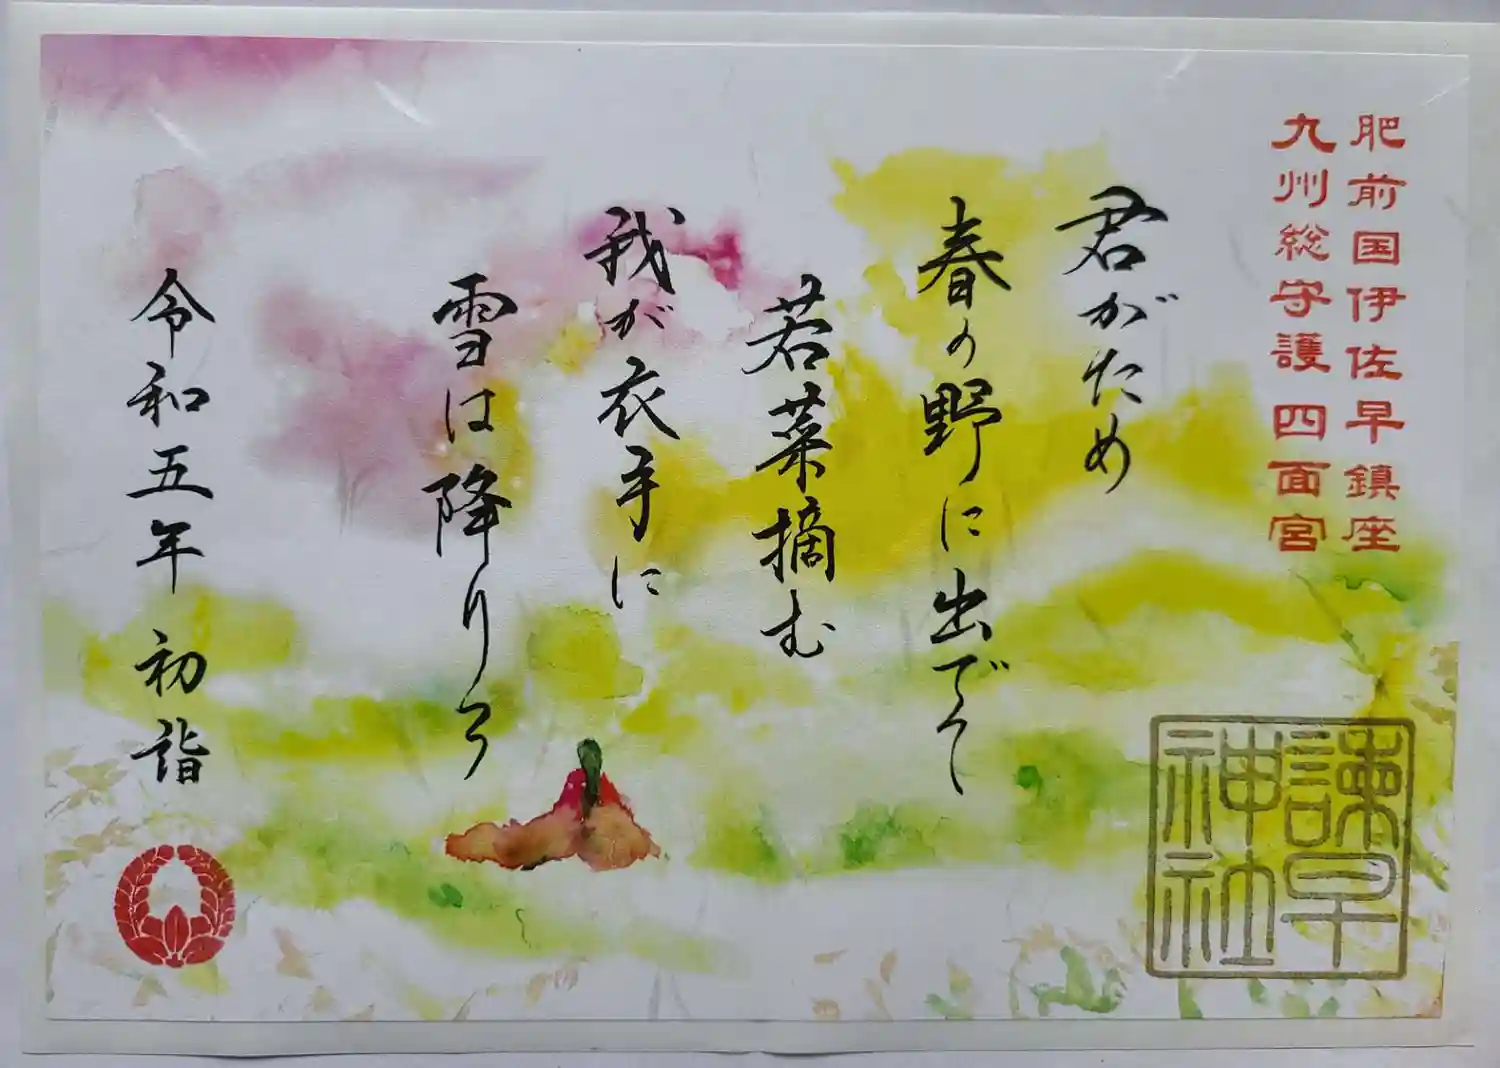 肥前国伊佐早鎮座
九州総守護 四面宮
君がため
春の野に出でて
若菜摘む
我が衣手に
雪は降りつつ
令和五年 初詣
諫早
神社